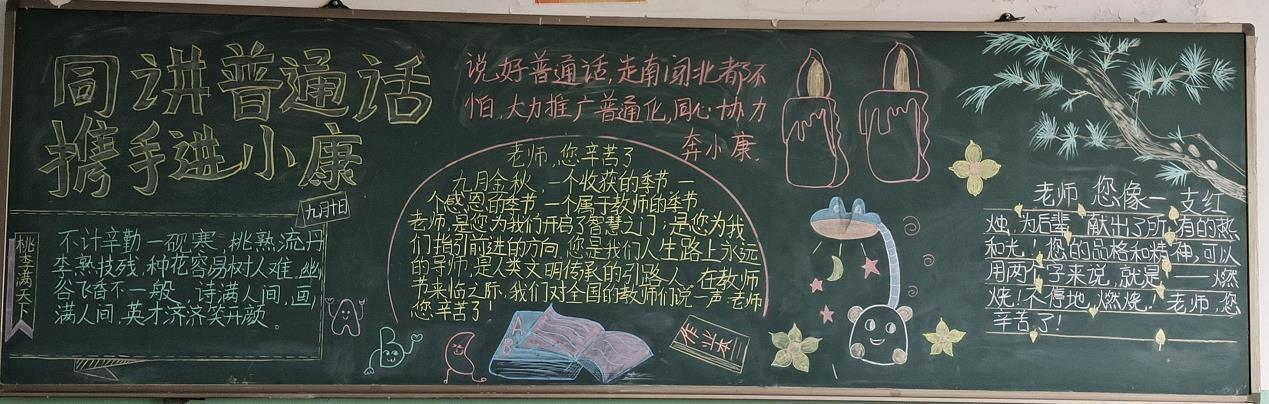 同讲普通话
携手进小康
九月十日
桃李满天下
不计辛勤一砚寒，桃熟流丹
李熟技残，种花容易树人难，幽
谷飞香不一般，诗满人间，画
满人间，英才济济笑开颜。
说好普通话，走南闯北都不
怕，大力推广普通化，同心协力
奔小康.
老师，您辛苦了
九月金秋，一个收获的季节，一
个感恩的季节，一个属于教师的季节，
老师，是您为我们开启了智慧之门；是您为我
们指引前进的方向，您是我们人生路上永远
的导师，是人类文明传承的引路人，在教师
书来临之际，我们对全国的教师们说一声：老师
您辛苦了！
A
B
作业本
老师，您像一支红
烛，为后辈，献出了所有的热
和光！您的品格和精神，可以
用两个字来说，就是——燃
烧！不停地，燃烧！老师，您
辛苦了！